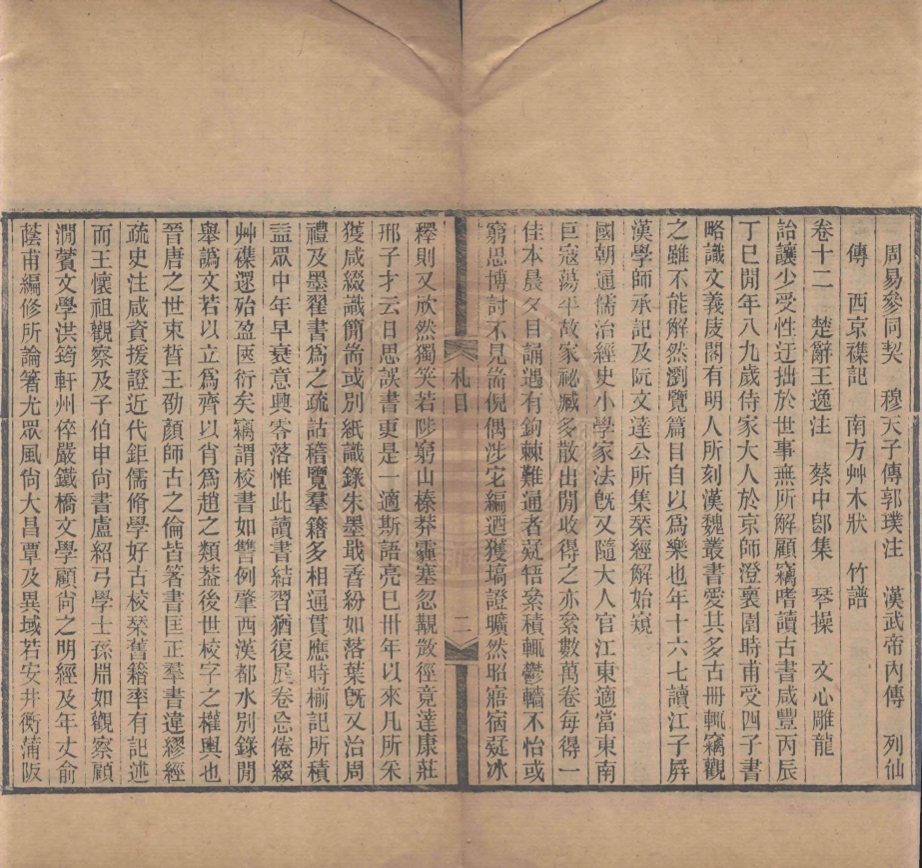 周易參同契　穆天子傳郭璞注　漢武帝內傳　列仙
傳　西京襍記　南方艸木狀　竹譜
卷十二　楚辭王逸注　蔡中郎集　琴操　文心雕龍
詒讓少受性迂拙於世事無所解顧竊嗜讀古書咸豐丙辰
丁巳閒年八九歲侍家大人於京師澄裏園時甫受四子書
略識文義庋閣有明人所刻漢魏叢書愛其多古冊輒竊觀
之雖不能解然瀏覽篇目自以爲樂也年十六七讀江子屛
漢學師承記及阮文達公所集栞經解始窺
國朝通儒治經史小學家法旣又隨大人官江東適當東南
巨寇蕩平故家祕臧多散出閒收得之亦絫數萬卷每得一
佳本晨夕目誦遇有鉤棘難通者疑牾絫積輒鬱轖不怡或
窮思博討不見耑倪偶涉它編迺獲塙證曠然昭寤宿疑冰
釋則又欣然獨笑若陟窮山榛莽霾塞忽覯微徑竟達康莊
邢子才云日思誤書更是一適斯語亮巳卅年以來凡所采
獲咸綴識簡耑或別紙識錄朱墨戢孴紛如落葉旣又治周
禮及墨翟書爲之疏詁稽覽羣籍多相通貫應時椾記所積
益眾中年早衰意興零落惟此讀書結習猶復展卷忘倦綴
艸襍遝殆盈匧衍矣竊謂校書如讐例肇西漢都水別錄閒
舉譌文若以立爲齊以肖爲趙之類葢後世校字之權輿也
晉唐之世束晳王劭顏師古之倫皆箸書匡正羣書違繆經
疏史注咸資援證近代鉅儒脩學好古校栞舊籍率有記述
而王懷祖觀察及子伯申尙書盧紹弓學士孫淵如觀察顧
澗薲文學洪筠軒州倅嚴鐵橋文學顧尙之明經及年丈俞
蔭甫編修所論箸尤眾風尙大昌覃及異域若安井衡蒲阪
札目
二